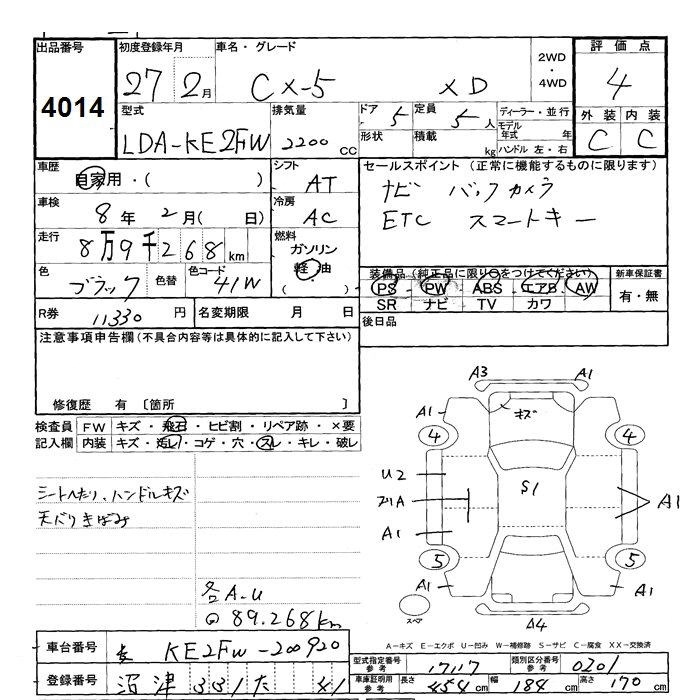 出品番号
4014
初度登録年月
27 2月
車名・グレード
CX-5 XD
2WD・4WD
評価点
4
型式
LDA-KE2FW
排気量
2200 CC
ドア 5
定員 5人
形状
積載 kg
ディーラー・並行
モデル年式 年
ハンドル 左・右
外装 内装
C C
車歴
自家用・( )
シフト
AT
セールスポイント (正常に機能するものに限ります)
ナビ バックカメラ
ETC スマートキー
車検
8年 2月( 日)
冷房
AC
走行
8万9千268km
燃料
ガソリン
軽油
( )
色
ブラック
色替
色コード
41W
装備品 (純正品に限り○をつけてください)
PS PW ABS エアB AW
SR ナビ TV カワ
新車保証書
有・無
R券 11330 円
名変期限 月 日
後日品
注意事項申告欄(不具合内容等は具体的に記入して下さい)
修復歴 有 〔箇所 〕
検査員記入欄
FW キズ・飛石・ヒビ割・リペア跡・×要
内装 キズ・汚れ・コゲ・穴・スレ・キレ・破レ
シートへたり、ハンドルキズ
天バリきばみ
各A-U
89.268km
A3 A1
A1 キズ
4 4
U2
S1
A1
A1
5 5
A1 A1
スペア
A4
A-キズ E-エクボ U-凹み W-補修跡 S-サビ C-腐食 XX-交換済
車台番号 KE2FW-200920
登録番号 沼津 331 た 41
型式指定番号 参考 17117
類別区分番号 参考 0201
車庫証明用 参考 長さ 454cm 幅 184cm 高さ 170cm